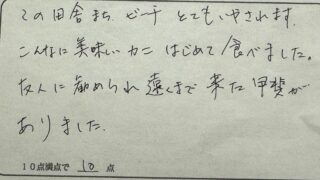 この田舎まち、ビーチ とてもいやされます。
こんなに美味しいカニ はじめて食べました。
友人に勧められ遠くまで来た甲斐が
ありました。
10点満点で 10 点